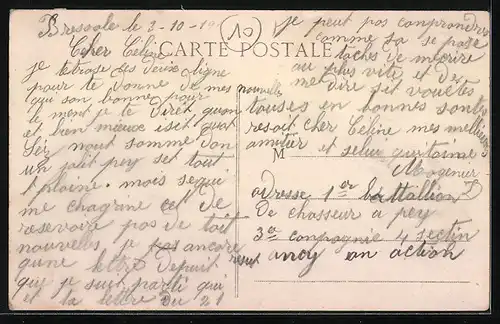 Bressole le 2-10-19
Cher Céline
CARTE POSTALE
je tetrase ses deux ligne
pour te donne de mes nouvelles
qui son bonne pour
le ment je te diret quon
et bien mieux isit quat
nout somme don
un jolit pey set tout
plaine. mois sequi
me chagrine cet de
reservoire pas de tout
nouvelles je pas ancore
qune lettre depuit
que je suit parti qui
et ta lettre du 21
10
je peut pas comprondres
comme sa se pase
taches de mecrire
au plus vite et de
me dire sit vouètes
toutes en bonnes sontés
resoit cher Céline mes meilleurs
amitier et selus
M
adresse 1er battallion
de chasseur à pey
3e compagnie 4 sectin
an action